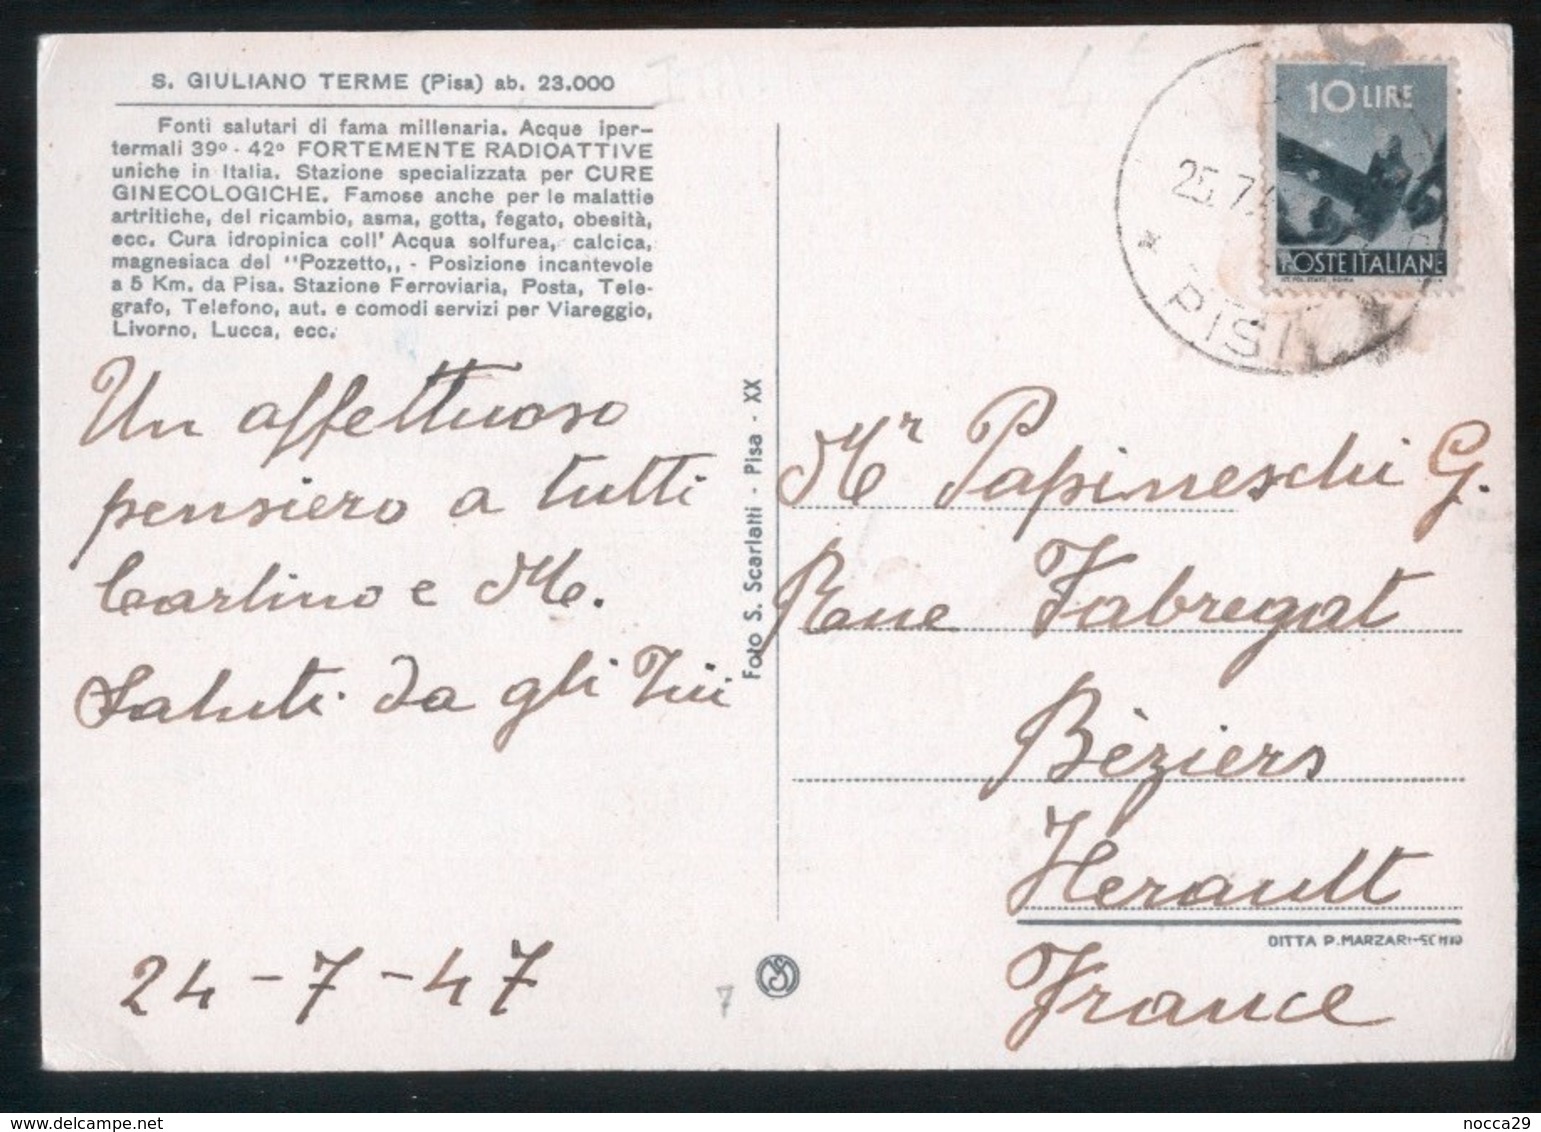 S. GIULIANO TERME (Pisa) ab. 23.000
Fonti salutari di fama millenaria. Acque iper-
termali 39º - 42º FORTEMENTE RADIOATTIVE
uniche in Italia. Stazione specializzata per CURE
GINECOLOGICHE. Famose anche per le malattie
artritiche, del ricambio, asma, gotta, fegato, obesità,
ecc. Cura idropinica coll' Acqua solfurea, calcica,
magnesiaca del "Pozzetto,, - Posizione incantevole
a 5 Km. da Pisa. Stazione Ferroviaria, Posta, Tele-
grafo, Telefono, aut. e comodi servizi per Viareggio,
Livorno, Lucca, ecc.
Un affettuoso
pensiero a tutti
Carlino e M.
Saluti da gli Zii
24-7-47
Foto S. Scarlatti - Pisa - XX
10 LIRE
POSTE ITALIANE
25.7.
PISA
Mr Papineschi G.
Rue Fabregat
Bèziers
Herault
DITTA P. MARZARI-SCHIO
France
7
nocca29